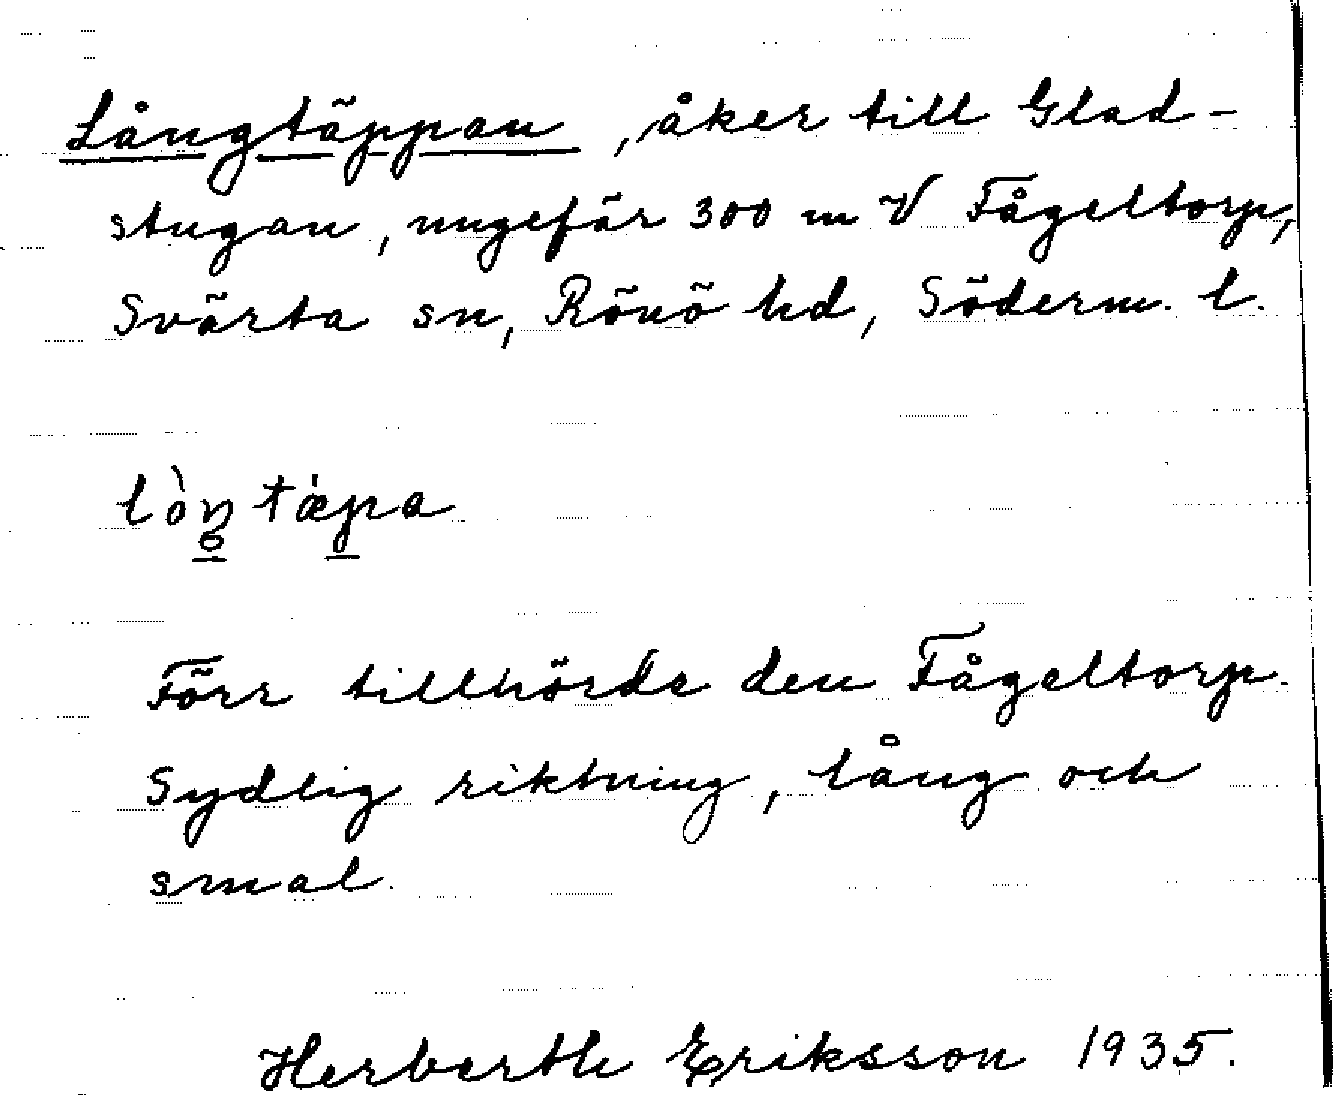 Långtäppan, åker till Glad-
stugan, ungefär 300 m V Fågeltorp,
Svärta sn, Rönö hd, Söderm. l.
lòŋtæ̀pa
Förr tillhörde den Fågeltorp.
Sydlig riktning, lång och
smal.
Herberth Eriksson 1935.